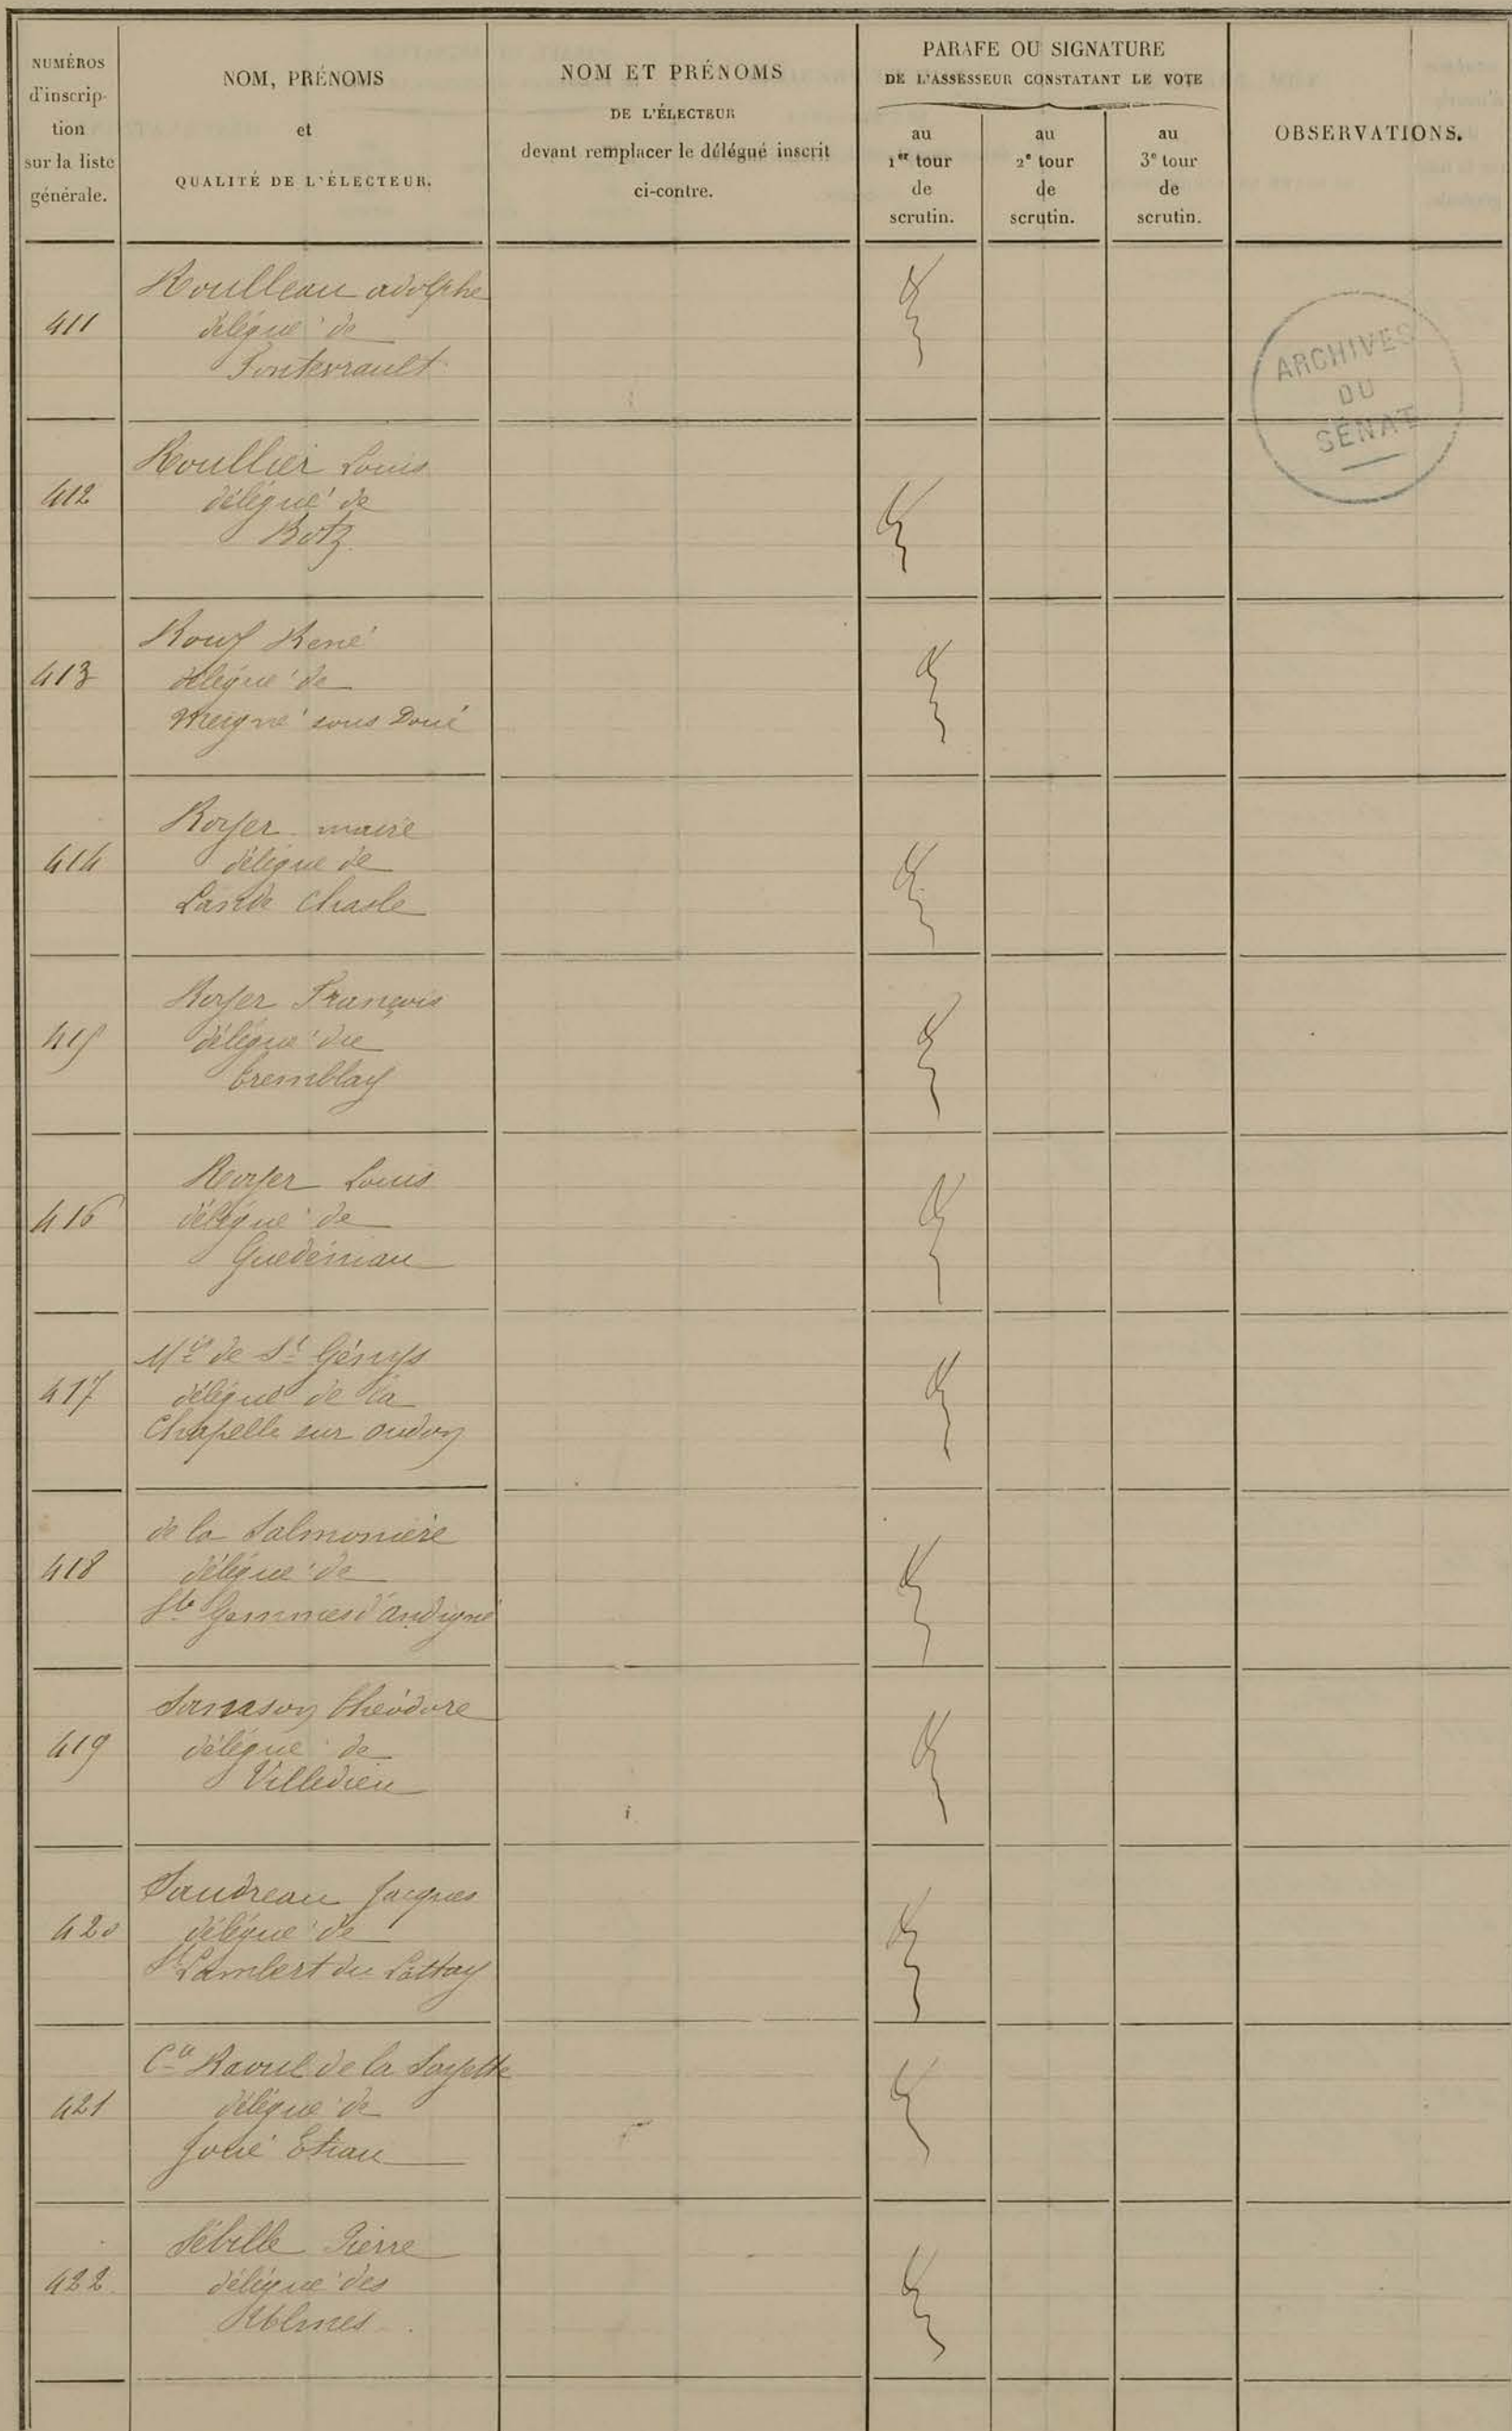 NUMÉROS
d'inscrip-
tion
sur la liste
générale.
NOM, PRÉNOMS
et
QUALITÉ DE L'ÉLECTEUR.
NOM ET PRÉNOMS
DE L'ÉLECTEUR
devant remplacer le délégué inscrit
ci-contre.
PARAFE OU SIGNATURE
DE L'ASSESSEUR CONSTATANT LE VOTE
au
1er tour
de
scrutin.
au
2e tour
de
scrutin.
au
3e tour
de
scrutin.
OBSERVATIONS.
ARCHIVES
DU
SÉNAT
Roulleau adolphe
411 délégué de
Fontevrault
Roullier Louis
412 délégué de
Botz
René
413 délégué de
Meigné sous Doué
Royer maire
414 délégué de
Lande Chasle
Royer François
415 délégué du
Tremblay
Royer Louis
416 délégué de
Guedéniau
Mis de St Génys
417 délégué de la
Chapelle sur oudon
de la Salmonière
418 délégué de
Ste Gemmes d'andigné
Samson théodore
419 délégué de
Villedieu
Saudreau Jacques
420 délégué de
St Lambert du Lattay
Cte Raoul de la Sayette
421 délégué de
Joué Etiau
Sébille Pierre
422. délégué des
Ulmes.